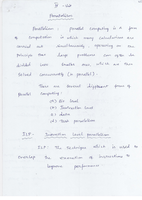 Parallelism
Parallelism : parallel computing is a form
of computation in which many calculations are
carried out simultaneously, operating on the
principle that large problems can often be
divided into smaller ones, which are then
solved concurrently (in parallel).
There are several different forms of
parallel computing :
(1) Bit level
(2) Instruction level
(3) data
(4) Task parallelism
ILP - Instruction level parallelism
ILP - The technique which is used to
overlap the execution of instructions to
improve performance